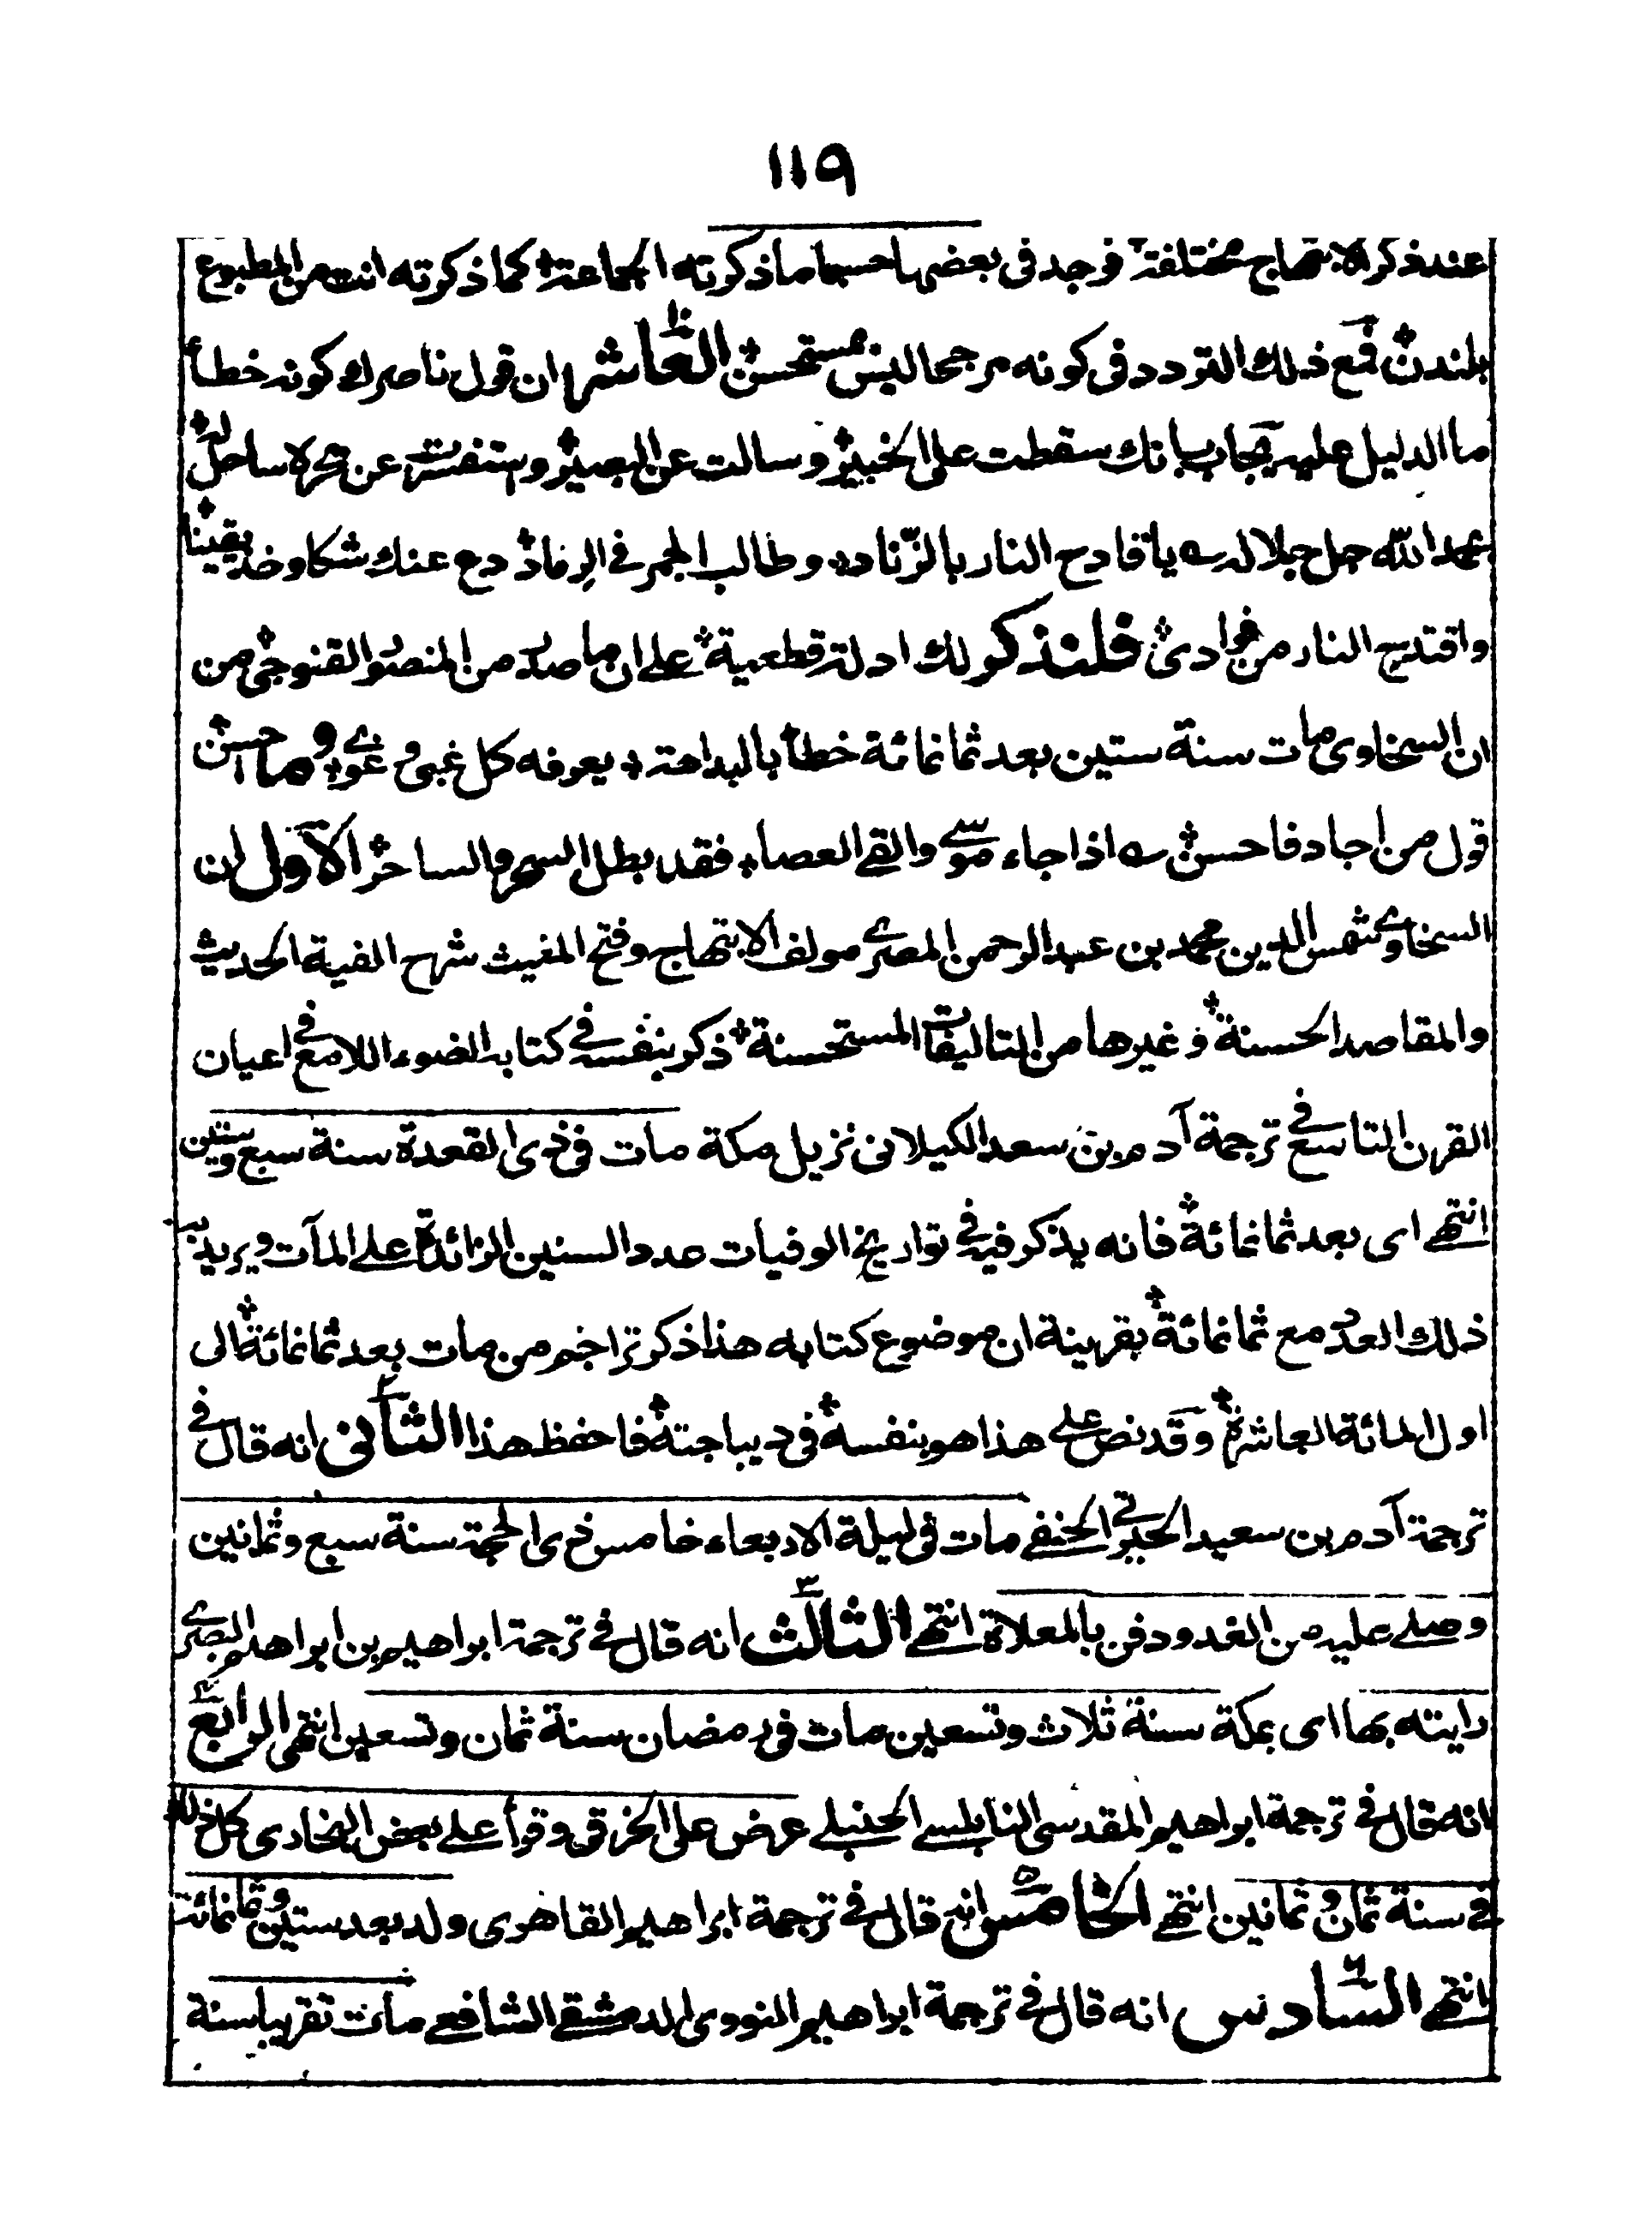 ١١٩
عند ذكر الابتهاج مختلفة فوجد في بعضها حسبما ما ذكرته الجماعة كما ذكرته انت من المطبوع
بلندن فمع ذلك التردد في كونه مرجحا ليس بمستحسن العاشر ان قول ناصرك كونه خطأ
ما الدليل عليه يجاب بانك سقطت على الخبير وسالت عن البصير واستفسرت عن بحر لا ساحل له
بحمد الله جل جلاله ؎ يا قادح النار بالزناد وطالب الجمر في الرماد دع عنك شكا وخذ يقينا
واقتدح النار من فوادي فلنذكر لك ادلة قطعية على ان ما صدر من المنصور القنوجي من
ان السخاوي مات سنة ستين بعد ثمانمائة خطأ بالبداهة يعرفه كل غبي وغوي وما احسن
قول من اجاد فاحسن ؎ اذا جاء موسى والقى العصا فقد بطل السحر والساحر الاول ان
السخاوي شمس الدين محمد بن عبد الرحمن المصري مولف الابتهاج وفتح المغيث شرح الفية الحديث
والمقاصد الحسنة وغيرها من التاليفات المستحسنة ذكر بنفسه في كتابه الضوء اللامع في اعيان
القرن التاسع في ترجمة آدم بن سعد الكيلاني نزيل مكة مات في ذي القعدة سنة سبع وستين
انتهى اي بعد ثمانمائة فانه يذكر فيه في تواريخ الوفيات عدد السنين الزائدة على المآت ويريد به
ذلك العدد مع ثمانمائة بقرينة ان موضوع كتابه هذا ذكر تراجم من مات بعد ثمانمائة الى
اول المائة العاشرة وقد نص على هذا هو بنفسه في ديباجته فاحفظ هذا الثاني انه قال في
ترجمة آدم بن سعيد الحبرتي الحنفي مات في ليلة الاربعاء خامس ذي الحجة سنة سبع وثمانين
وصلى عليه من الغد ودفن بالمعلاة انتهى الثالث انه قال في ترجمة ابراهيم بن ابراهيم البصري
رايته بها اي بمكة سنة ثلاث وتسعين مات في رمضان سنة ثمان وتسعين انتهى الرابع
انه قال في ترجمة ابراهيم المقدسي النابلسي الحنبلي عرض على الخرقي وقرأ على بعض البخاري كل ذلك
في سنة ثمان وثمانين انتهى الخامس انه قال في ترجمة ابراهيم القاهري ولد بعد ستين وثمانمائة
انتهى السادس انه قال في ترجمة ابراهيم النووي الدمشقي الشافعي مات تقريبا سنة